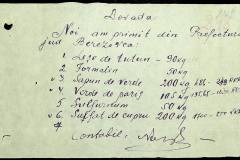 Dovada
Noi am primit din Prefectura
jud Berezovca:
1 Leșe de tutun - 90 kg
2 Formalin 50 kg
v 3 Sapun de verde 200 kg
v 4 Verde de paris
5 Sulfurnum 50 kg
v 6 Sulfat de cupru 200 kg
Contabil: